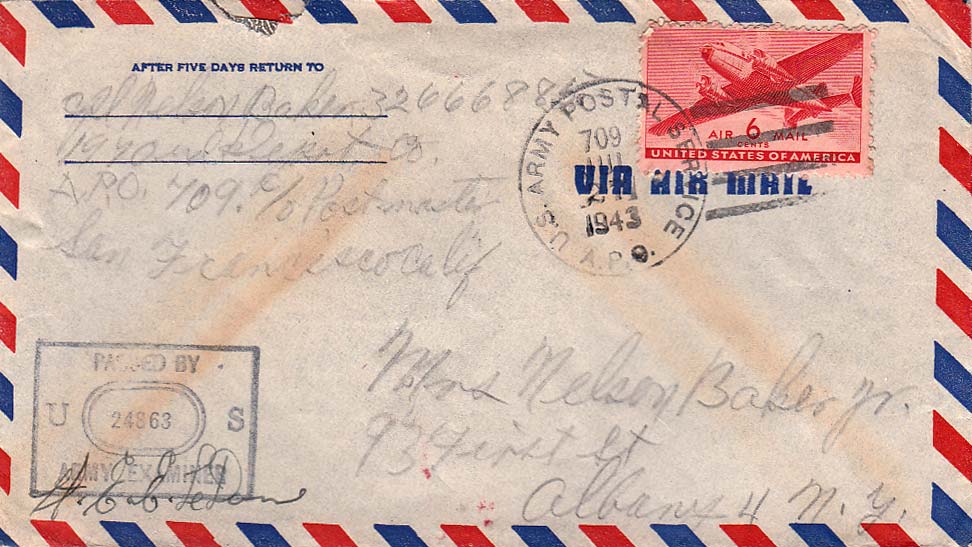 AFTER FIVE DAYS RETURN TO
Nelson Baker 3266688
Co.
A.P.O. 709. c/o Postmaster
San Francisco Calif
U.S. ARMY POSTAL SERVICE
709
JUL
1943
A.P.O.
AIR 6 MAIL
CENTS
UNITED STATES OF AMERICA
VIA AIR MAIL
PASSED BY
U 24863 S
ARMY EXAMINER
Mrs Nelson Baker Jr.
93 First St
Albany 4 N.Y.